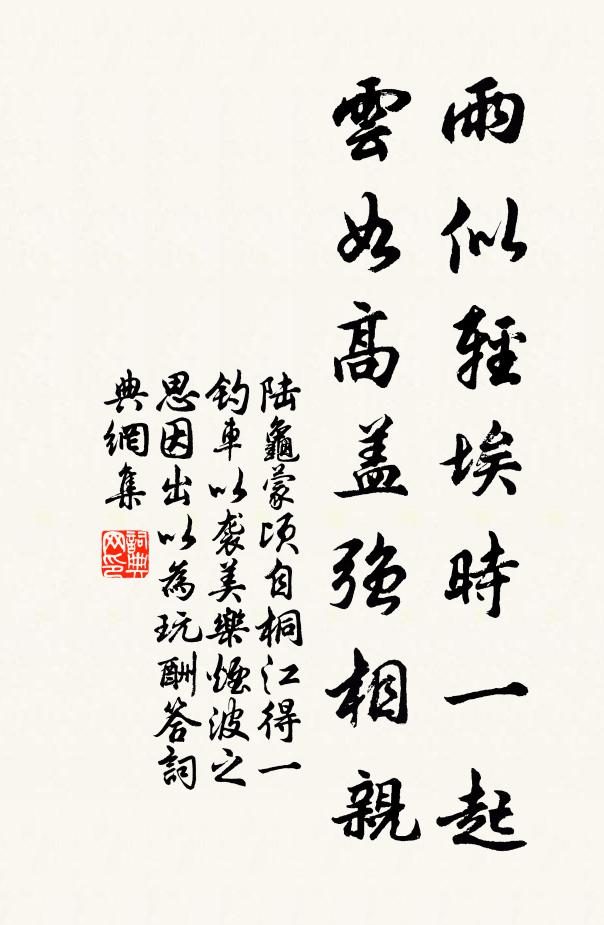 雨似輕埃時一起
雲如高蓋強相親
陆龜蒙頃自桐江得一
釣車以襲美樂煙波之
思因出以為玩酬答詞
典網集
詞典网印